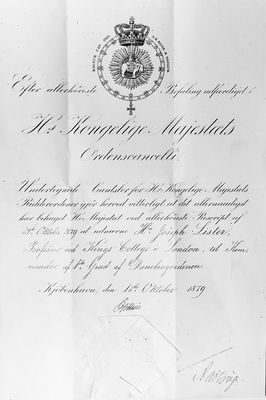 Efter allerhöieste Befaling udfærdiget i
Hs Kongelige Majestæts
Ordenscancelli.
Undertegnede Cantsler for Hs Kongelige Majestæts
Ridderordener gjör herved vitterligt at det allernaadigst
har behaget Hs Majestæt ved allerhöieste Rescript af
13de Oktober 1879 at udnævne Hr Joseph Lister,
Professor ved Kings College i London, til Com-
mandör af 1ste Grad af Dannebrogordenen.
Kjöbenhavn, den 15de Oktober 1879